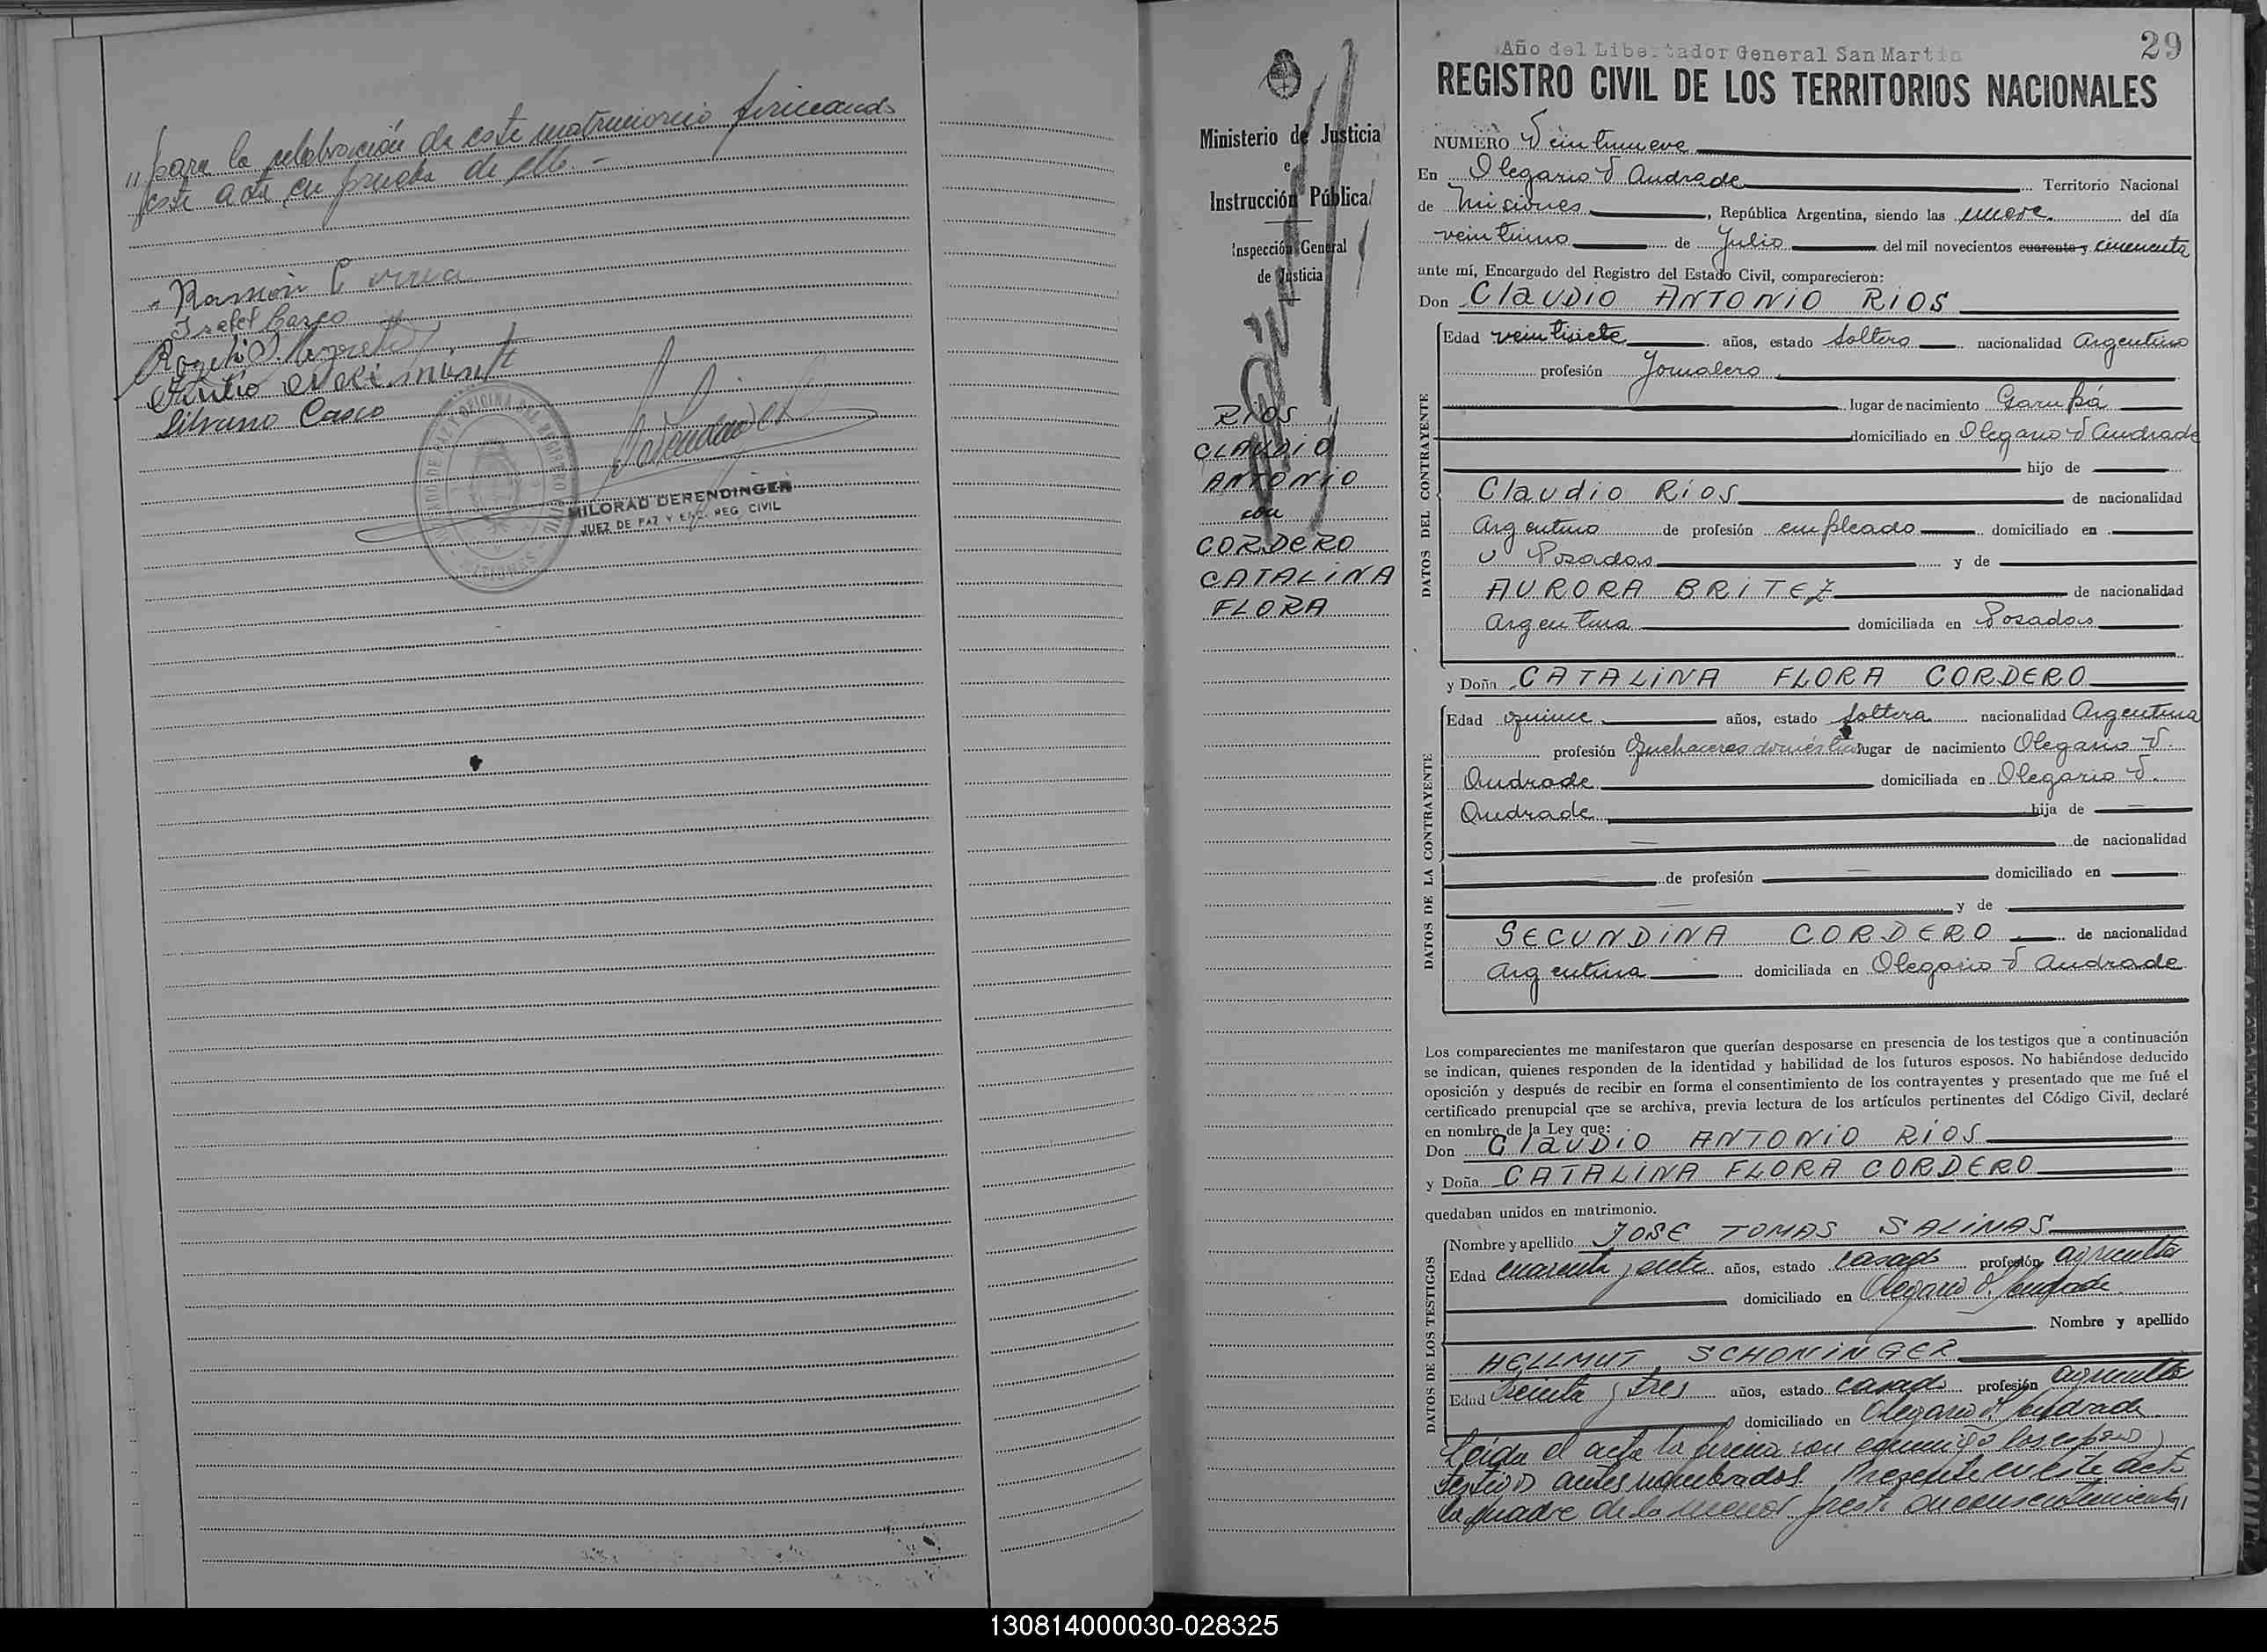 "para la celebración de este matrimonio firmando
este acta en prueba de ello.-
Ramón Correa
Isabel Casco
Silvano Casco
OFICINA DEL REGISTRO CIVIL
MILORAD DERENDINGER
JUEZ DE PAZ Y ENC. REG. CIVIL
Ministerio de Justicia
e
Instrucción Pública
Inspección General
de Justicia
RIOS
CLAUDIO
ANTONIO
con
CORDERO
CATALINA
FLORA
29
Año del Libertador General San Martín
REGISTRO CIVIL DE LOS TERRITORIOS NACIONALES
NUMERO Veintinueve
En Olegario V Andrade Territorio Nacional
de Misiones, República Argentina, siendo las nueve del día
veintiuno de Julio del mil novecientos cuarenta y cincuenta
ante mí, Encargado del Registro del Estado Civil, comparecieron:
Don Claudio ANTONIO RIOS
DATOS DEL CONTRAYENTE
Edad veintisiete años, estado soltero nacionalidad Argentino
profesión Jornalero
lugar de nacimiento Garupá
domiciliado en Olegario V Andrade
hijo de
Claudio Ríos de nacionalidad
Argentino de profesión empleado domiciliado en
Posadas y de
AURORA BRITEZ de nacionalidad
Argentina domiciliada en Posadas
y Doña CATALINA FLORA CORDERO
DATOS DE LA CONTRAYENTE
Edad quince años, estado soltera nacionalidad Argentina
profesión Quehaceres domésticos lugar de nacimiento Olegario V.
Andrade domiciliada en Olegario V.
Andrade hija de
de nacionalidad
de profesión domiciliado en
y de
SECUNDINA CORDERO de nacionalidad
Argentina domiciliada en Olegario V Andrade
Los comparecientes me manifestaron que querían desposarse en presencia de los testigos que a continuación
se indican, quienes responden de la identidad y habilidad de los futuros esposos. No habiéndose deducido
oposición y después de recibir en forma el consentimiento de los contrayentes y presentado que me fué el
certificado prenupcial que se archiva, previa lectura de los artículos pertinentes del Código Civil, declaré
en nombre de la Ley que:
Don Claudio ANTONIO RIOS
y Doña CATALINA FLORA CORDERO
quedaban unidos en matrimonio.
DATOS DE LOS TESTIGOS
Nombre y apellido JOSE TOMAS SALINAS
Edad cuarenta y siete años, estado casado profesión agricultor
domiciliado en Olegario V. Andrade
Nombre y apellido
HELLMUT SCHONINGER
Edad Treinta y tres años, estado casado profesión agricultor
domiciliado en Olegario V. Andrade
Leída el acta la firma con conmigo los esposos y
testigos antes nombrados. Presente en este acto
la madre de la menor presta su consentimiento"
130814000030-028325